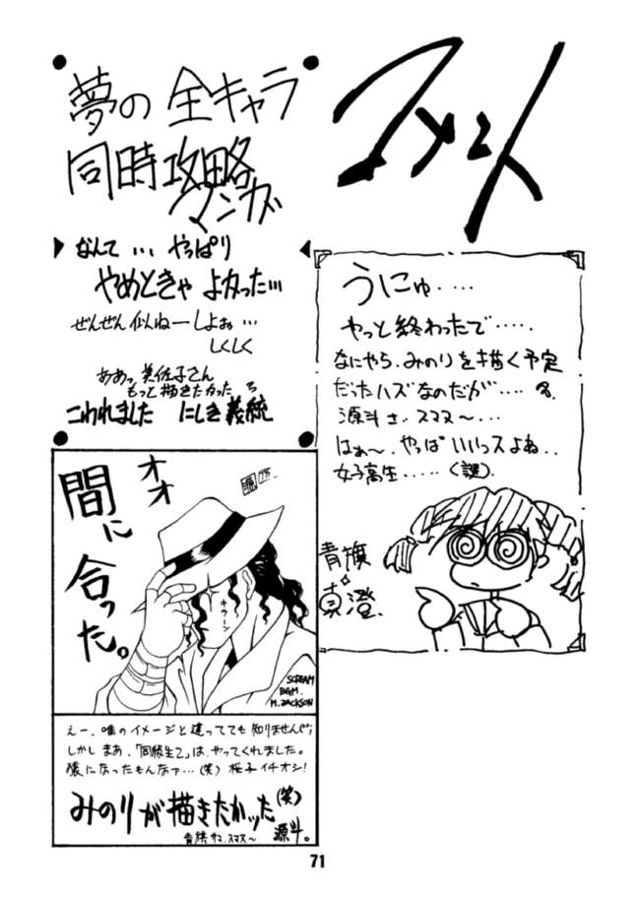 コメント
夢の全キャラ
同時攻略
マンガ
なんて… やっぱり
やめときゃ よかった…
ぜんぜん似ねーしよぉ…
しくしく
ああっ美佐子さん
もっと描きたかった
こわれました にしき義統
うにゅ・・・・
やっと終わったで・・・・・
なにやら、みのりを描く予定
だったハズなのだが・・・・
源斗さ、スマヌ～・・・
はぁ～、やっぱいいっスよね・・
女子高生・・・・・(謎)
青旗
真澄
オオ
間に
合った。
キラーン
SCREAM
BGM.
M.JACKSON
えー、唯のイメージと違ってても知りませんぜ;
しかしまあ、「同級生2」は、やってくれました。
様になったもんなァ…(笑) 桜子イチオシ!
みのりが描きたかッた(笑)
源斗。
青旗サマ、スマヌ～
71